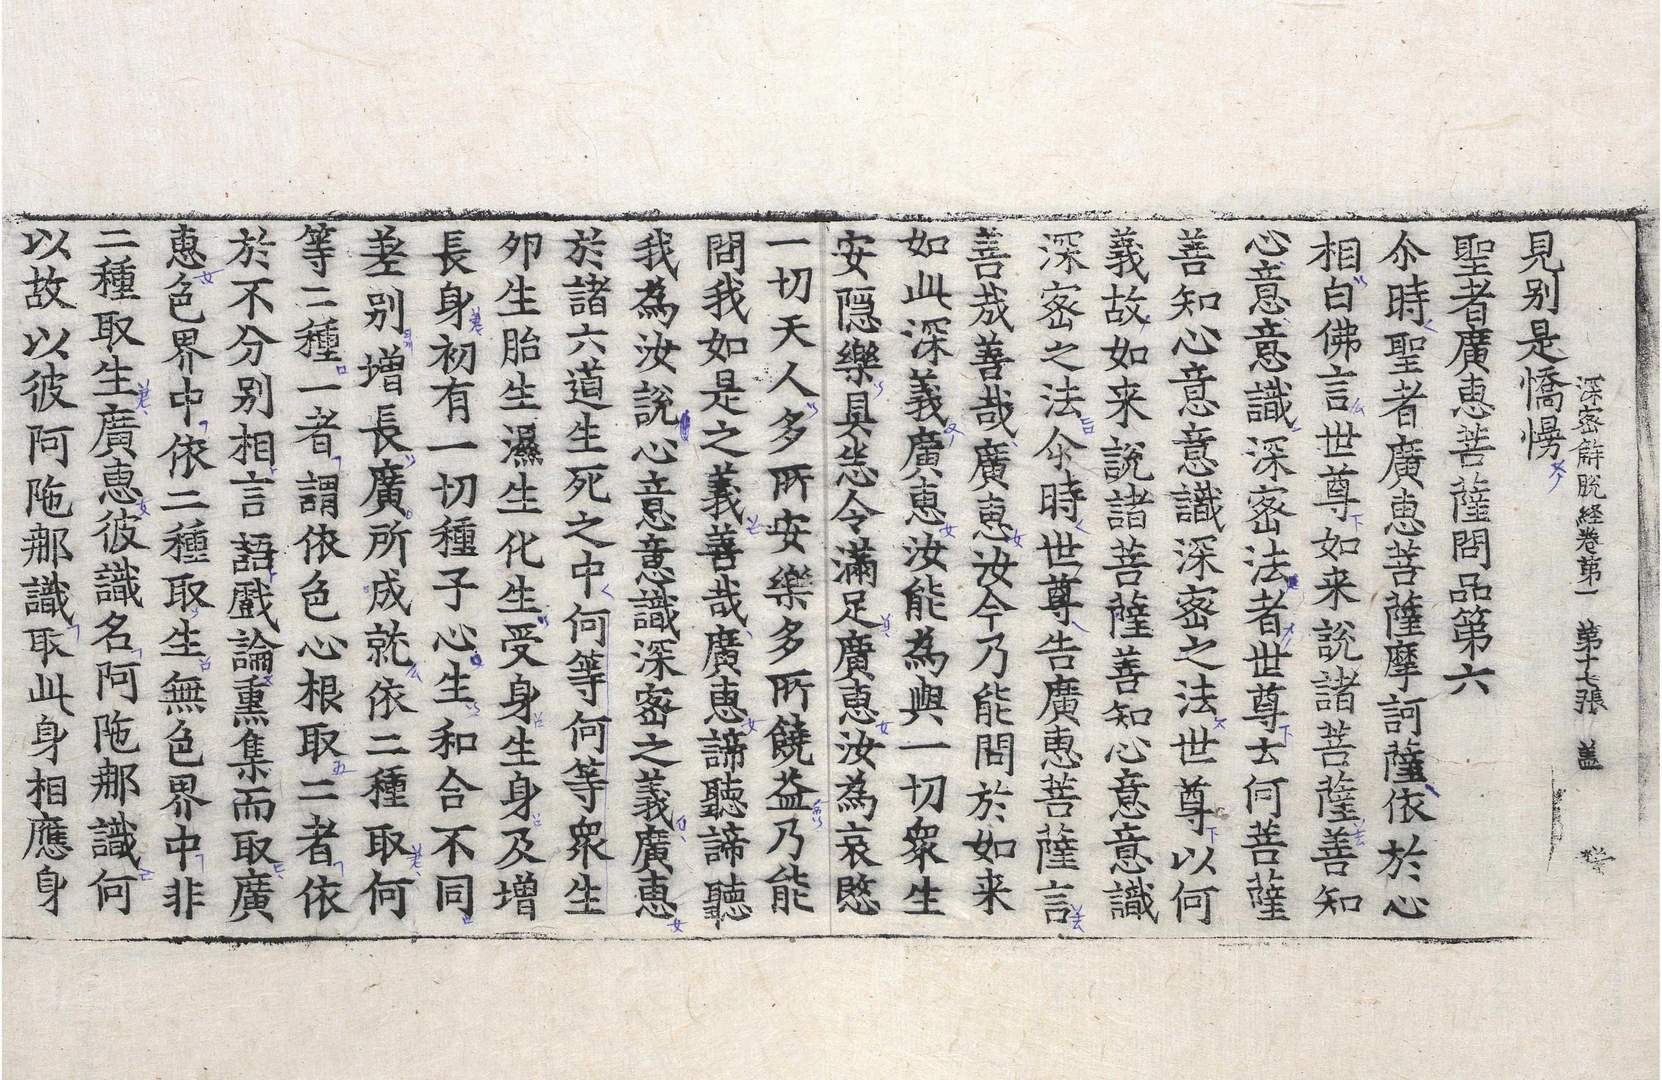 深密解脫経卷第一 第十七張 盖
見别是憍㥬
聖者廣恵菩薩問品第六
尒時聖者廣恵菩薩摩訶薩依於心
相白佛言世尊如来說諸菩薩善知
心意意識深密法者世尊云何菩薩
善知心意意識深密之法世尊以何
義故如来說諸菩薩善知心意意識
深密之法尒時世尊告廣恵菩薩言
善㢤善哉廣恵汝今乃能問於如来
如此深義廣恵汝能為與一切衆生
安隱樂具悉令滿足廣恵汝為哀愍
一切天人多所安樂多所饒益乃能
問我如是之義善哉廣恵諦聽諦聽
我為汝說心意意識深密之義廣恵
於諸六道生死之中何等何等衆生
夘生胎生濕生化生受身生身及增
長身初有一切種子心生和合不同
差别增長廣所成就依二種取何
等二種一者謂依色心根取二者依
於不分别相言語戲論熏集而取廣
恵色界中依二種取生無色界中非
二種取生廣恵彼識名阿陁那識何
以故以彼阿陁那識取此身相應身